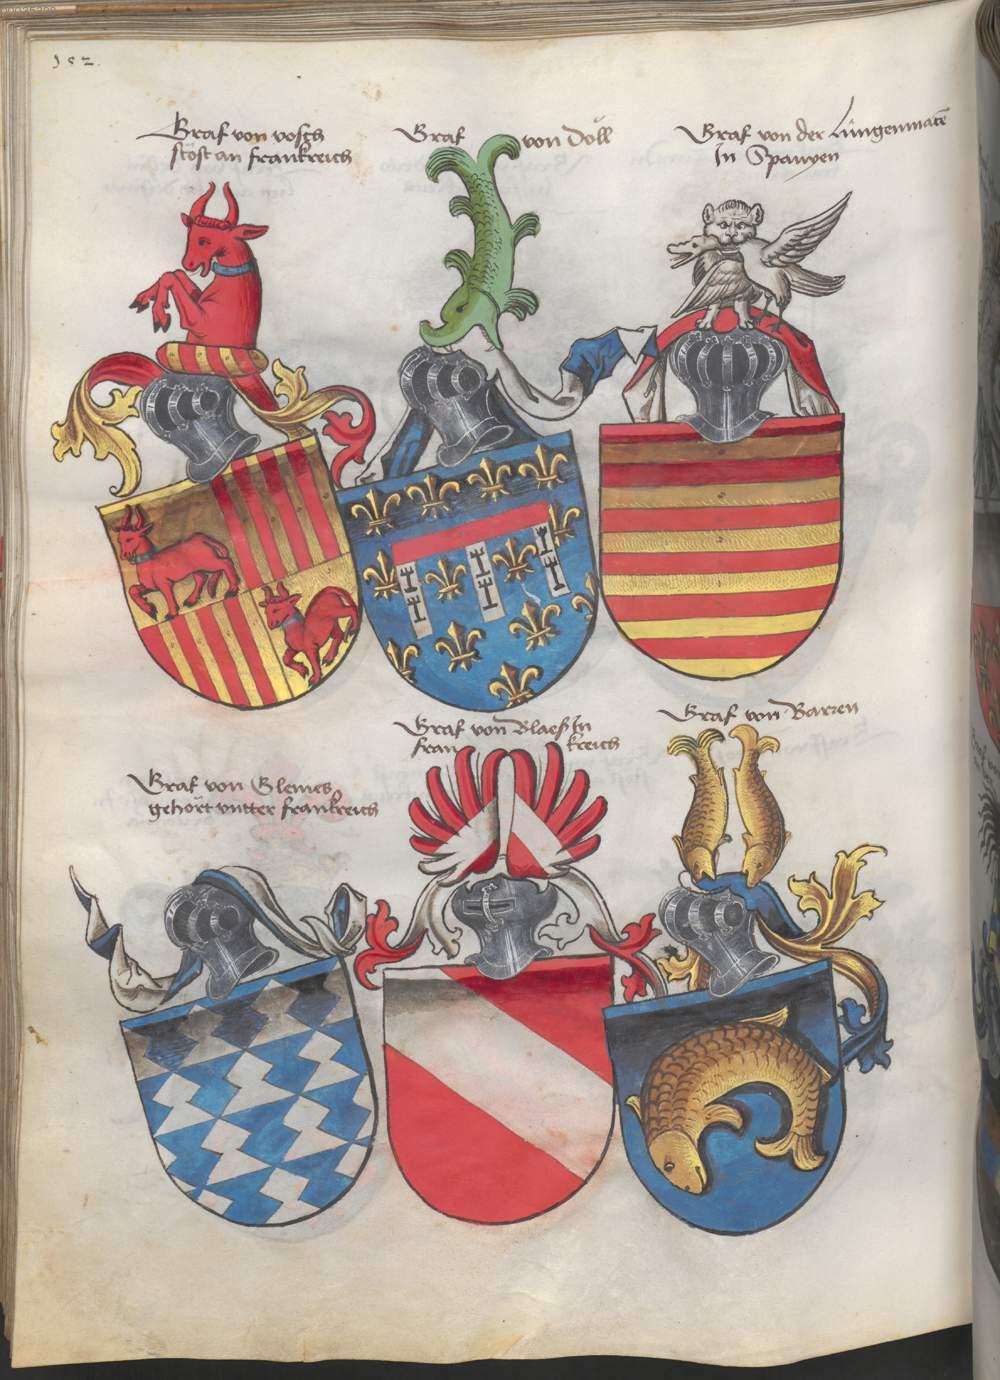 152.
Graf von vosch
stost an franckreich
Graf von Döll
Graf von der
In Spanyen
Graf von Blaeß In
franckreich
Graf von Barren
Graf von Glenies
gehört vntter franckreich